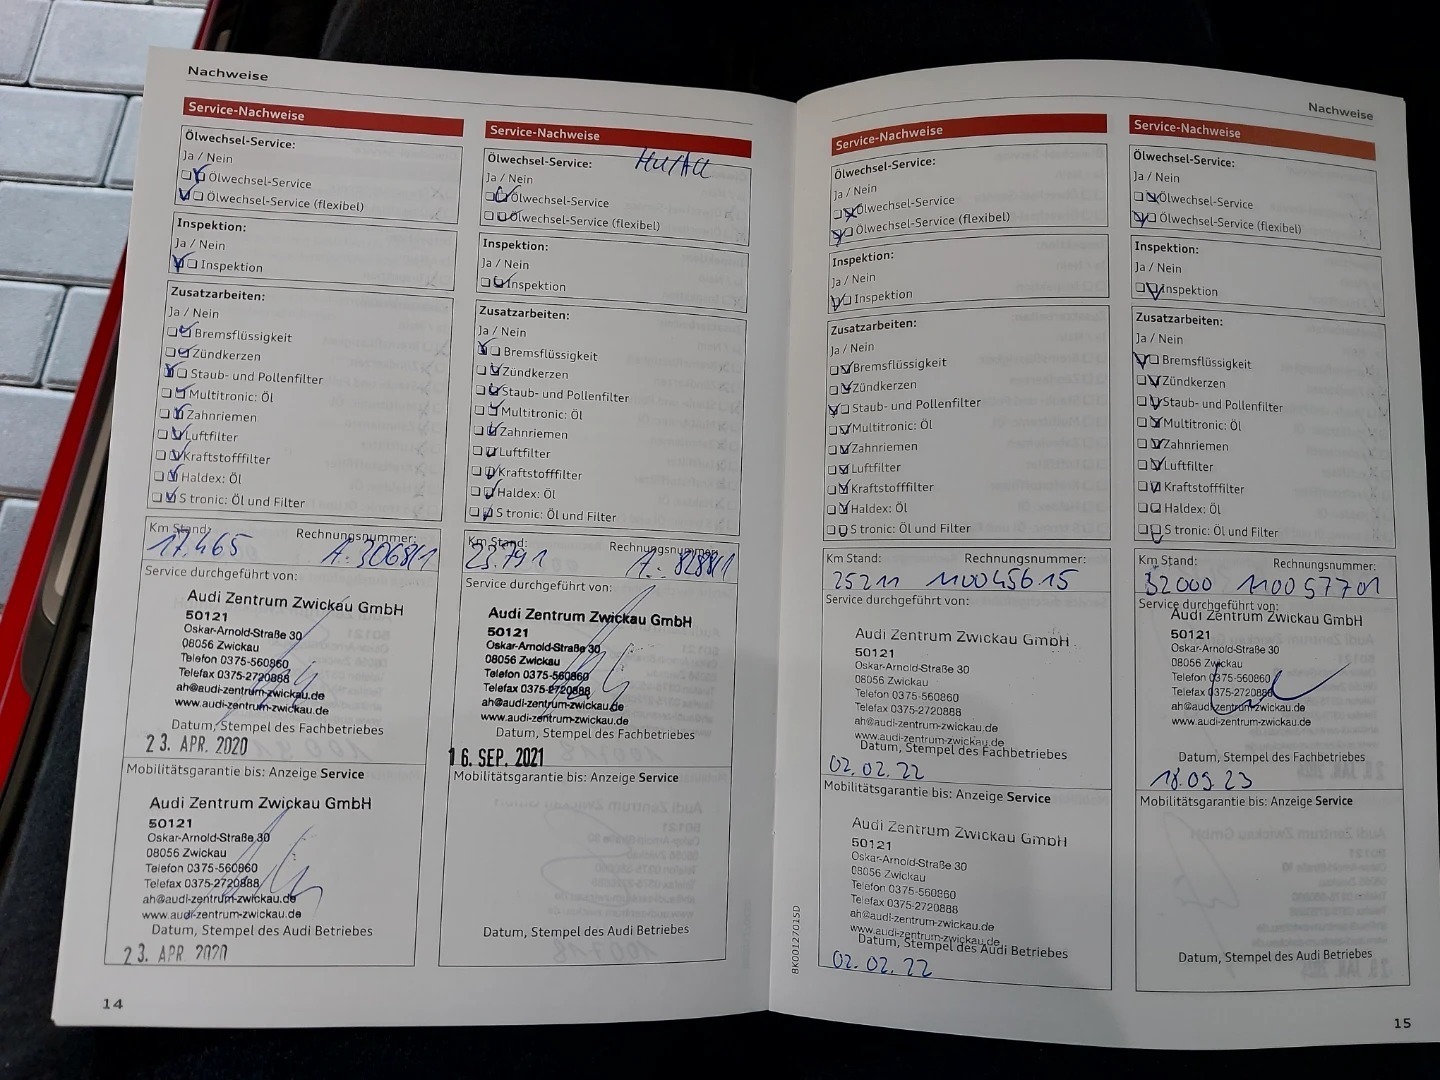 Nachweise
Service-Nachweise
Ölwechsel-Service:
Ja / Nein
Ölwechsel-Service
Ölwechsel-Service (flexibel)
Inspektion:
Ja / Nein
Inspektion
Zusatzarbeiten:
Ja / Nein
Bremsflüssigkeit
Zündkerzen
Staub- und Pollenfilter
Multitronic: Öl
Zahnriemen
Luftfilter
Kraftstofffilter
Haldex: Öl
S tronic: Öl und Filter
Km Stand: Rechnungsnummer:
17.465 A.:30681
Service durchgeführt von:
Audi Zentrum Zwickau GmbH
50121
Oskar-Arnold-Straße 30
08056 Zwickau
Telefon 0375-560860
Telefax 0375-2720888
ah@audi-zentrum-zwickau.de
www.audi-zentrum-zwickau.de
Datum, Stempel des Fachbetriebes
23. APR. 2020
Mobilitätsgarantie bis: Anzeige Service
Audi Zentrum Zwickau GmbH
50121
Oskar-Arnold-Straße 30
08056 Zwickau
Telefon 0375-560860
Telefax 0375-2720888
ah@audi-zentrum-zwickau.de
www.audi-zentrum-zwickau.de
Datum, Stempel des Audi Betriebes
23. APR. 2020
14
Service-Nachweise
Ölwechsel-Service: HU/AU
Ja / Nein
Ölwechsel-Service
Ölwechsel-Service (flexibel)
Inspektion:
Ja / Nein
Inspektion
Zusatzarbeiten:
Ja / Nein
Bremsflüssigkeit
Zündkerzen
Staub- und Pollenfilter
Multitronic: Öl
Zahnriemen
Luftfilter
Kraftstofffilter
Haldex: Öl
S tronic: Öl und Filter
Km Stand: Rechnungsnummer:
23.791
Service durchgeführt von:
Audi Zentrum Zwickau GmbH
50121
Oskar-Arnold-Straße 30
08056 Zwickau
Telefon 0375-560860
Telefax 0375-2720888
ah@audi-zentrum-zwickau.de
www.audi-zentrum-zwickau.de
Datum, Stempel des Fachbetriebes
16. SEP. 2021
Mobilitätsgarantie bis: Anzeige Service
Datum, Stempel des Audi Betriebes
Nachweise
Service-Nachweise
Ölwechsel-Service:
Ja / Nein
Ölwechsel-Service
Ölwechsel-Service (flexibel)
Inspektion:
Ja / Nein
Inspektion
Zusatzarbeiten:
Ja / Nein
Bremsflüssigkeit
Zündkerzen
Staub- und Pollenfilter
Multitronic: Öl
Zahnriemen
Luftfilter
Kraftstofffilter
Haldex: Öl
S tronic: Öl und Filter
Km Stand: Rechnungsnummer:
25211 110045615
Service durchgeführt von:
Audi Zentrum Zwickau GmbH
50121
Oskar-Arnold-Straße 30
08056 Zwickau
Telefon 0375-560860
Telefax 0375-2720888
ah@audi-zentrum-zwickau.de
www.audi-zentrum-zwickau.de
Datum, Stempel des Fachbetriebes
02.02.22
Mobilitätsgarantie bis: Anzeige Service
Audi Zentrum Zwickau GmbH
50121
Oskar-Arnold-Straße 30
08056 Zwickau
Telefon 0375-560860
Telefax 0375-2720888
ah@audi-zentrum-zwickau.de
www.audi-zentrum-zwickau.de
Datum, Stempel des Audi Betriebes
02.02.22
BK0012701SD
Service-Nachweise
Ölwechsel-Service:
Ja / Nein
Ölwechsel-Service
Ölwechsel-Service (flexibel)
Inspektion:
Ja / Nein
Inspektion
Zusatzarbeiten:
Ja / Nein
Bremsflüssigkeit
Zündkerzen
Staub- und Pollenfilter
Multitronic: Öl
Zahnriemen
Luftfilter
Kraftstofffilter
Haldex: Öl
S tronic: Öl und Filter
Km Stand: Rechnungsnummer:
32000 110057701
Service durchgeführt von:
Audi Zentrum Zwickau GmbH
50121
Oskar-Arnold-Straße 30
08056 Zwickau
Telefon 0375-560860
Telefax 0375-2720888
ah@audi-zentrum-zwickau.de
www.audi-zentrum-zwickau.de
Datum, Stempel des Fachbetriebes
18.09.23
Mobilitätsgarantie bis: Anzeige Service
Datum, Stempel des Audi Betriebes
15